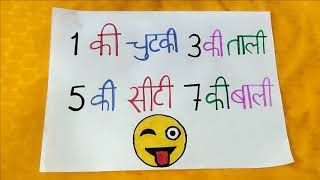 1 की चुटकी 3 की ताली
5 की सीटी 7 की बाली